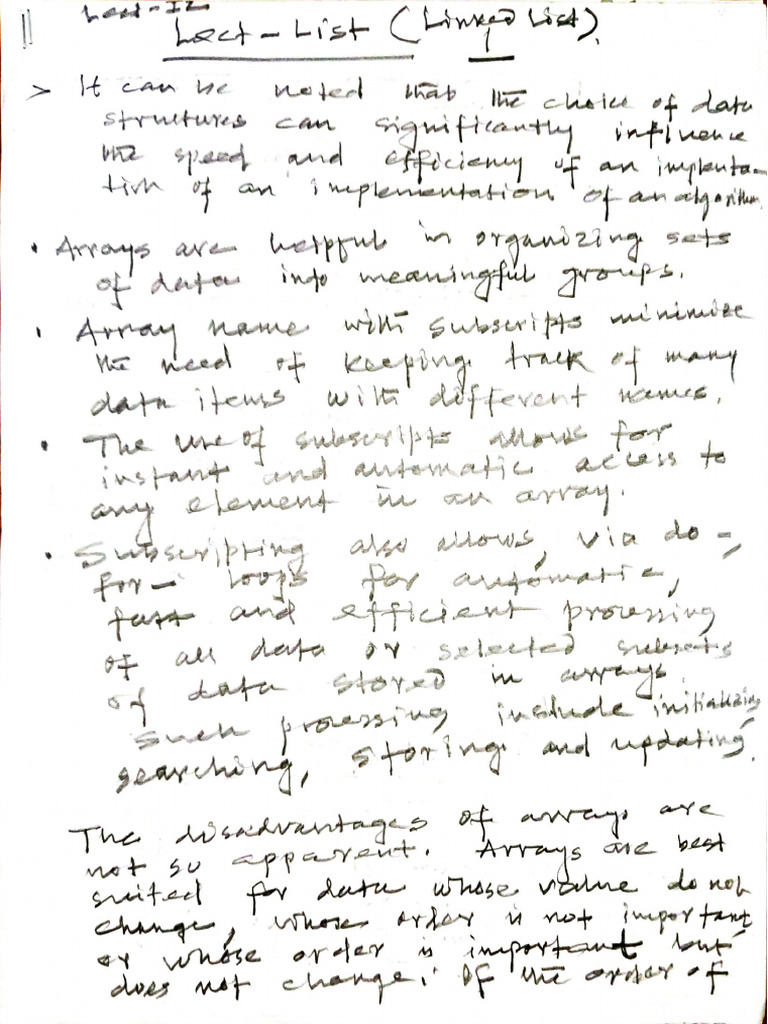 Lect-II
Lect - List (Linked List).
> It can be noted that the choice of data
structures can significantly influence
the speed and efficiency of an implenta-
tion of an implementation of an algorithm.
• Arrays are helpful in organizing sets
of data into meaningful groups.
• Array name with subscripts minimize
the need of keeping track of many
data items with different names.
• The use of subscripts allows for
instant and automatic access to
any element in an array.
• Subscripting also allows, via do-,
for- loops for automatic,
fast and efficient processing
of all data or selected subsets
of data stored in arrays.
Such processing include initializing,
searching, storing and updating.
The disadvantages of arrays are
not so apparent. Arrays are best
suited for data whose value do not
change, whose order is not important
or whose order is important but
does not change. If the order of